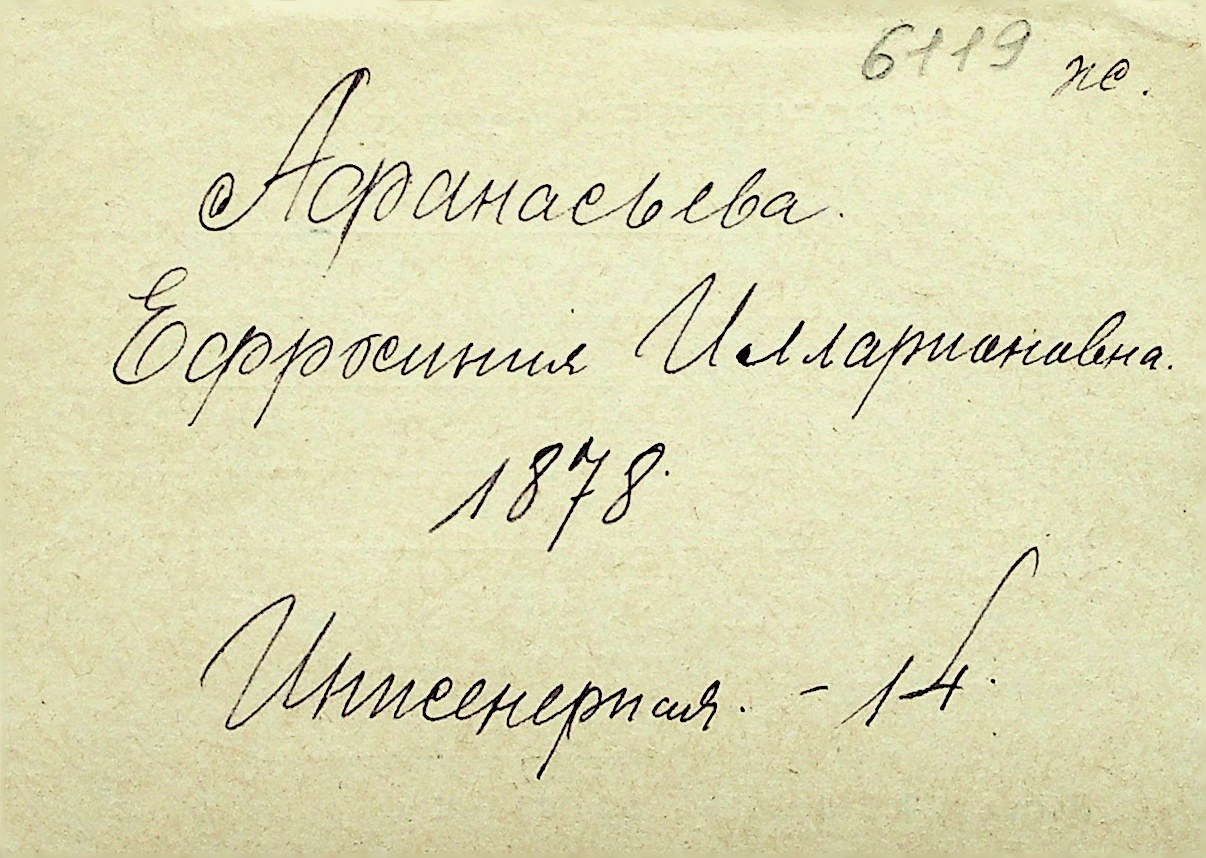 6119 ж.
Афанасьева.
Ефросиния Илларионовна.
1878.
Инженерная. - 14.